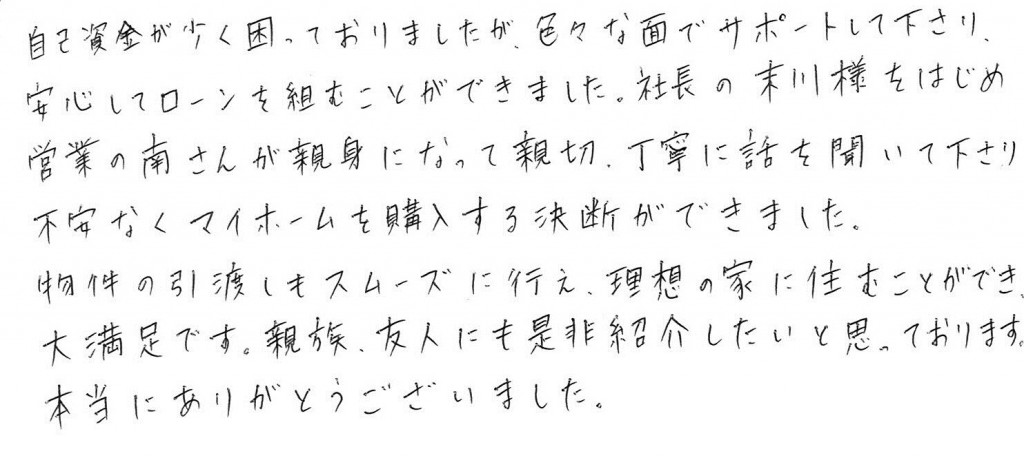 自己資金が少く困っておりましたが、色々な面でサポートして下さり、
安心してローンを組むことができました。社長の末川様をはじめ
営業の南さんが親身になって親切、丁寧に話を聞いて下さり
不安なくマイホームを購入する決断ができました。
物件の引渡しもスムーズに行え、理想の家に住むことができ、
大満足です。親族、友人にも是非紹介したいと思っております。
本当にありがとうございました。